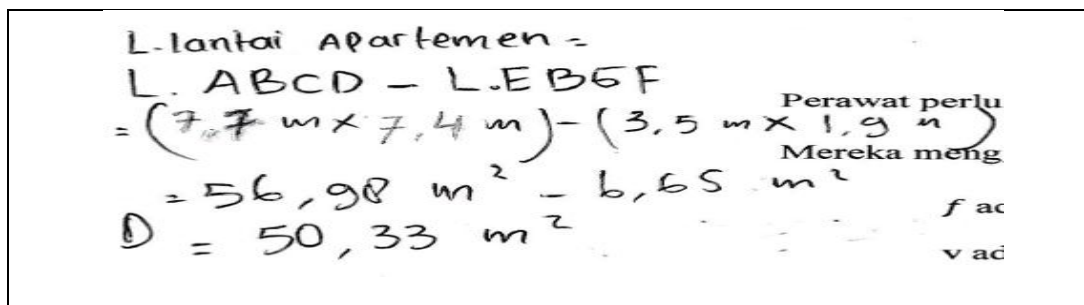 L. lantai Apartemen =
L. ABCD - L. EBGF
Perawat perlu
= (7,7 m x 7,4 m) - (3,5 m x 1,9 m)
Mereka meng
= 56,98 m² - 6,65 m²
f ac
D = 50,33 m²
v ad